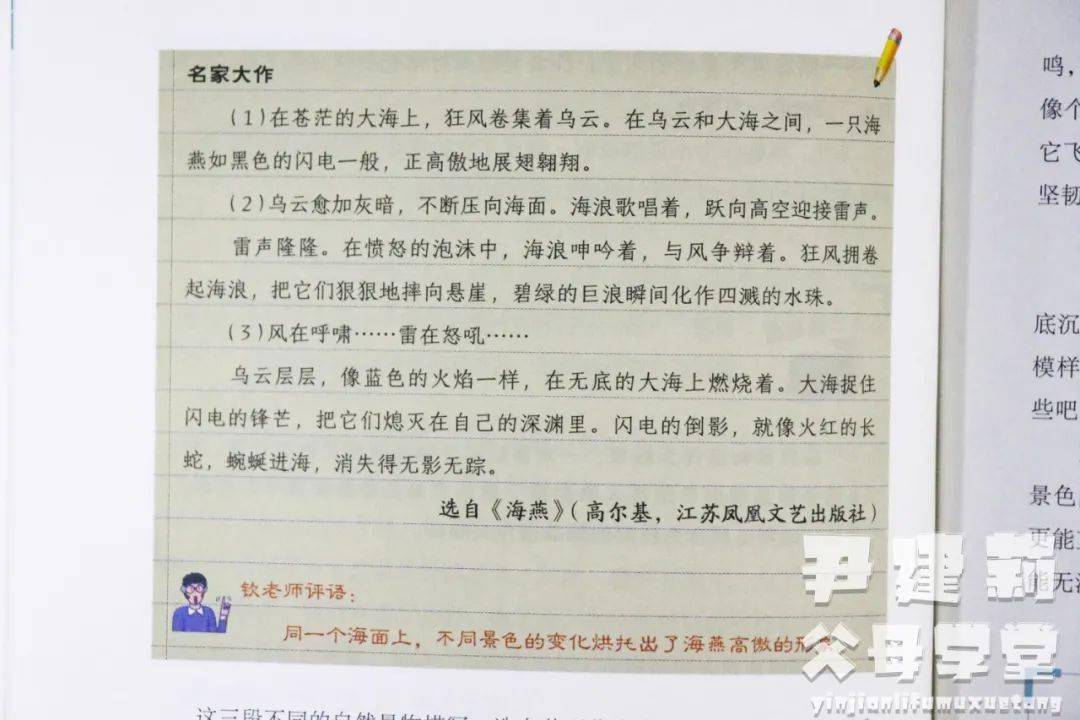 名家大作
（1）在苍茫的大海上，狂风卷集着乌云。在乌云和大海之间，一只海
燕如黑色的闪电一般，正高傲地展翅翱翔。
（2）乌云愈加灰暗，不断压向海面。海浪歌唱着，跃向高空迎接雷声。
雷声隆隆。在愤怒的泡沫中，海浪呻吟着，与风争辩着。狂风拥卷
起海浪，把它们狠狠地摔向悬崖，碧绿的巨浪瞬间化作四溅的水珠。
（3）风在呼啸……雷在怒吼……
乌云层层，像蓝色的火焰一样，在无底的大海上燃烧着。大海捉住
闪电的锋芒，把它们熄灭在自己的深渊里。闪电的倒影，就像火红的长
蛇，蜿蜒进海，消失得无影无踪。
选自《海燕》（高尔基，江苏凤凰文艺出版社）
钦老师评语：
同一个海面上，不同景色的变化烘托出了海燕高傲的形象。
鸣，
像个
它飞
坚韧
底沉
模样
些吧
景色
更能
能无
尹建莉
父母学堂
yinjianlifumuxuetang